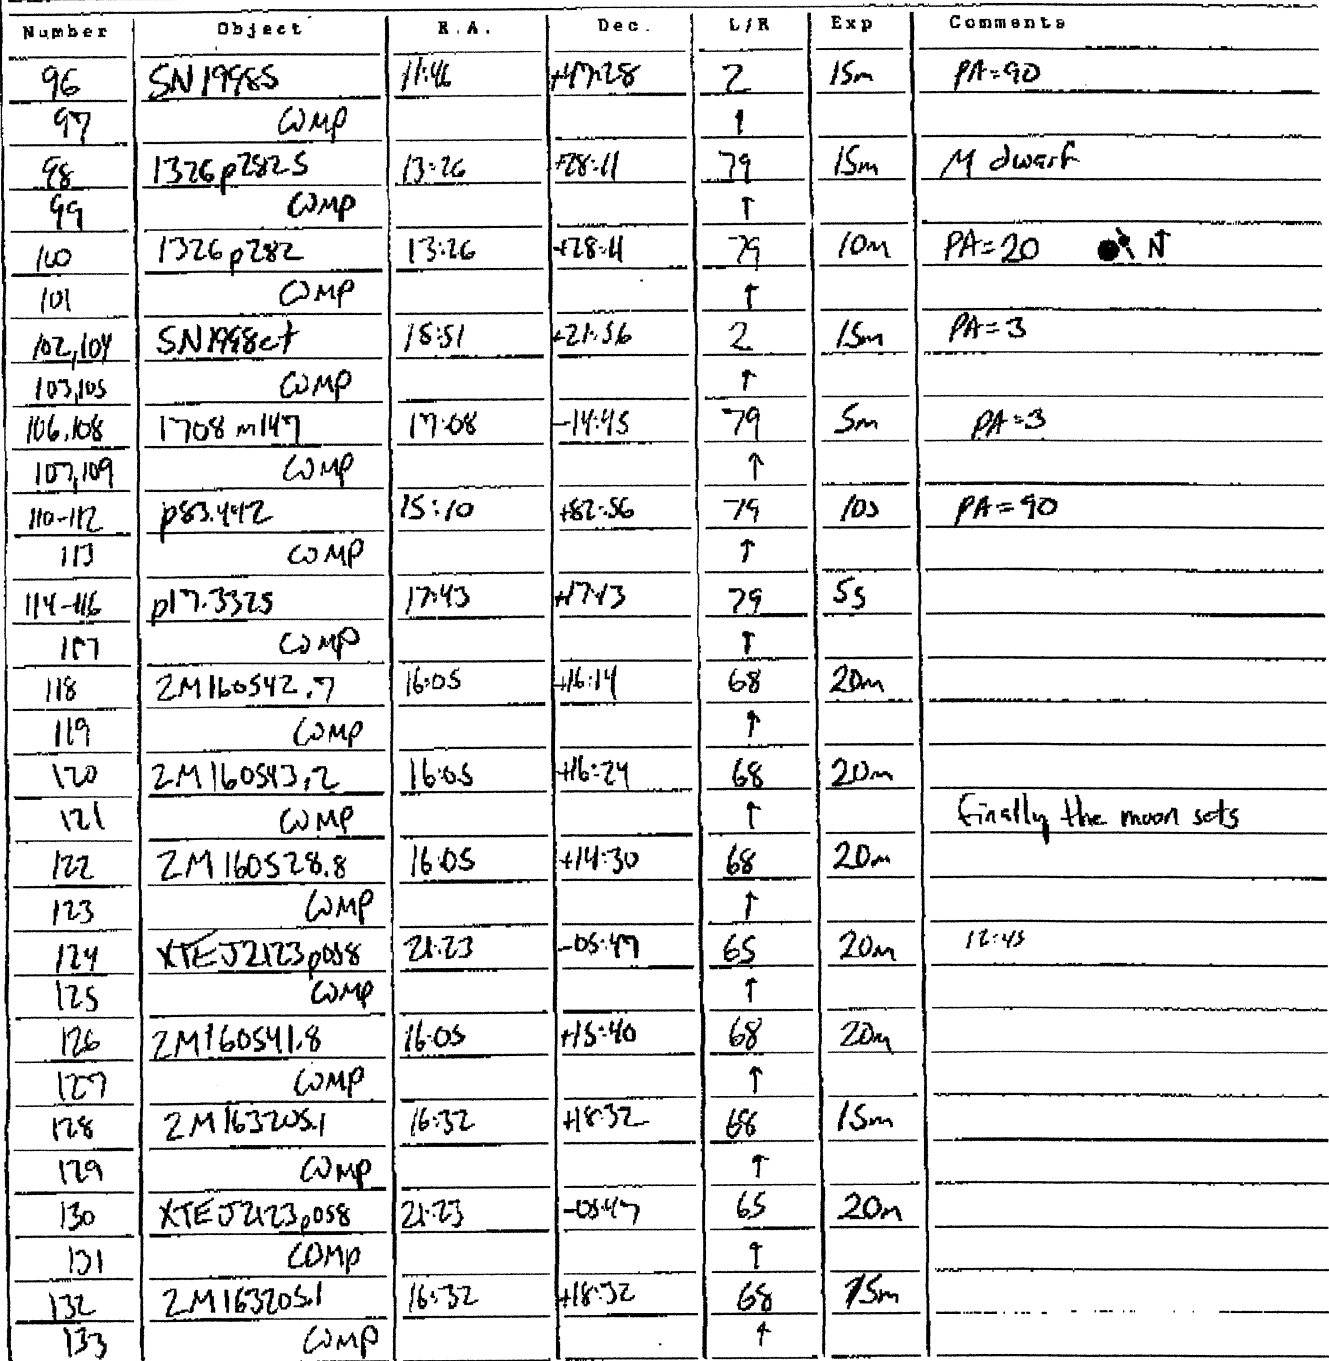 Number Object R.A. Dec. L/R Exp Comments
96 SN1998S 11:46 +47:28 2 15m PA=90
97 COMP ↑
98 1326p282S 13:26 +28:11 79 15m M dwarf
99 COMP ↑
100 1326p282 13:26 +28:11 79 10m PA=20 N
101 COMP ↑
102,104 SN1998ct 18:51 +21:56 2 15m PA=3
103,105 COMP ↑
106,108 1708m147 17:08 -14:45 79 5m PA=3
107,109 COMP ↑
110-112 p83.442 15:10 +82:56 79 10s PA=90
113 COMP ↑
114-116 p17.3325 17:43 +17:13 79 5s
117 COMP ↑
118 2M160542.7 16:05 +16:14 68 20m
119 COMP ↑
120 2M160543.2 16:05 +16:24 68 20m
121 COMP ↑ finally the moon sets
122 2M160528.8 16:05 +14:30 68 20m
123 COMP ↑
124 XTEJ2123p058 21:23 -05:47 65 20m 12:45
125 COMP ↑
126 2M160541.8 16:05 +15:40 68 20m
127 COMP ↑
128 2M163205.1 16:32 +18:32 68 15m
129 COMP ↑
130 XTEJ2123p058 21:23 -05:47 65 20m
131 COMP ↑
132 2M163205.1 16:32 +18:32 68 15m
133 COMP ↑